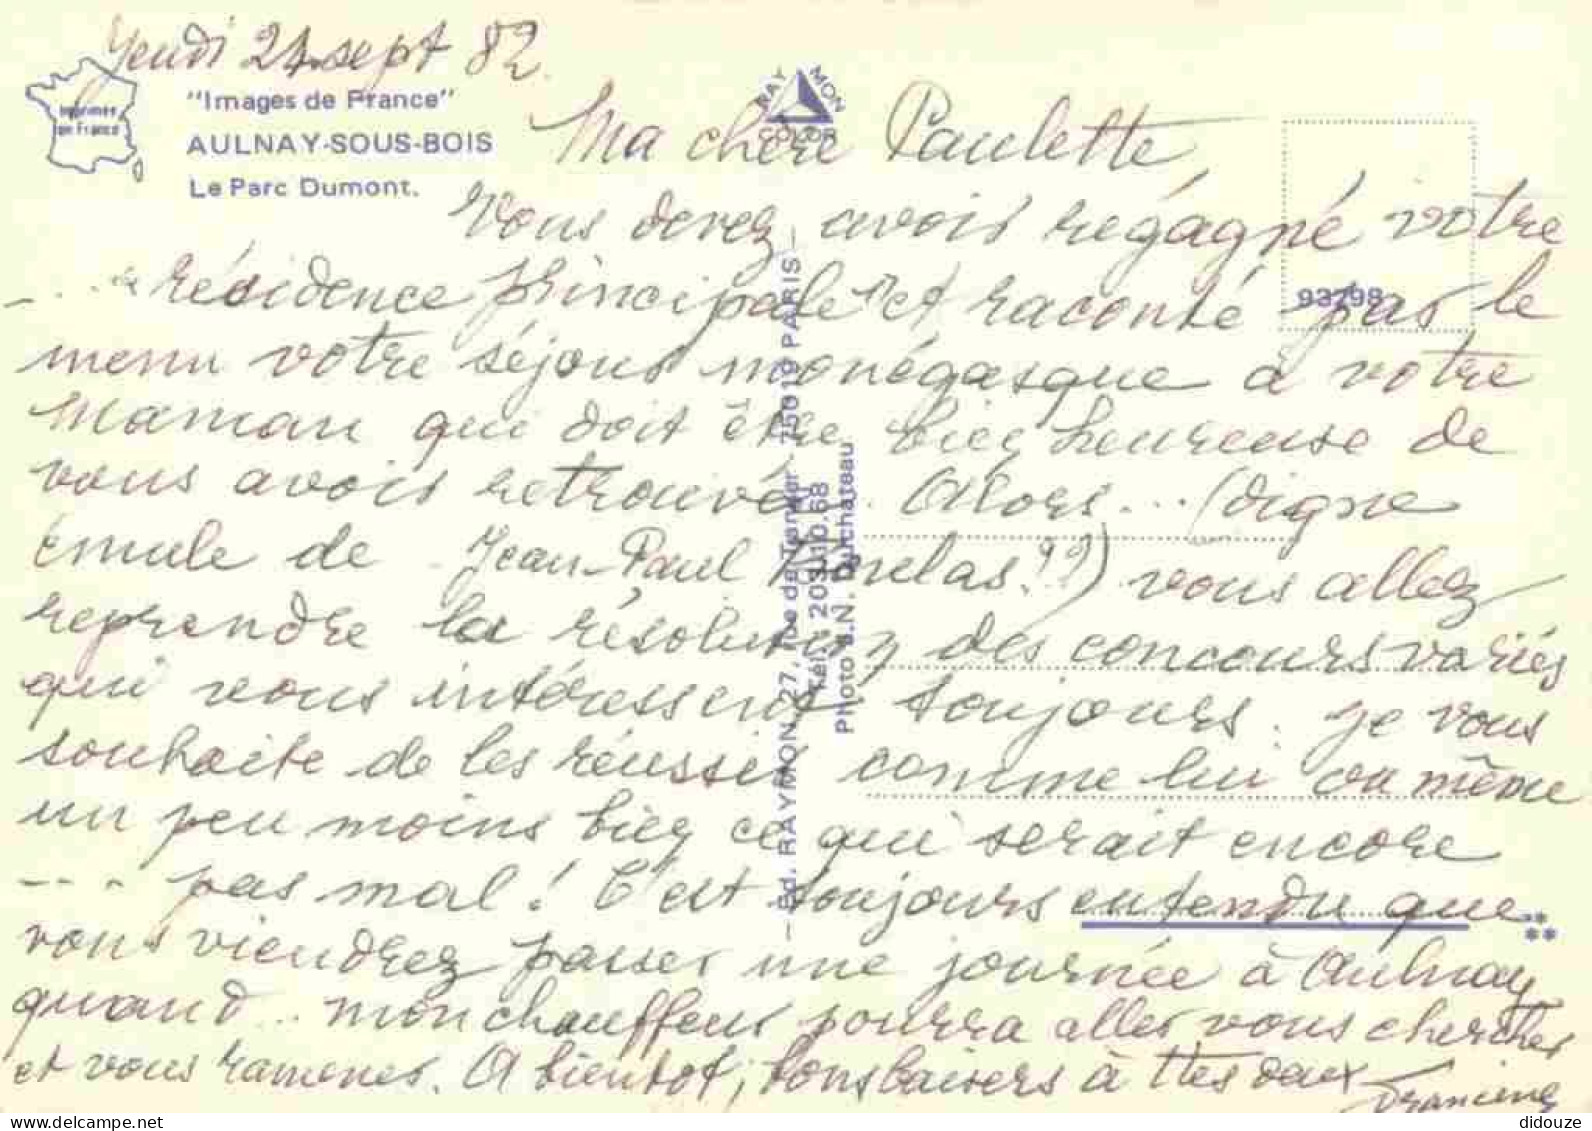 Jeudi 24 sept 82
Imprimée
en France
"Images de France"
AULNAY-SOUS-BOIS
Le Parc Dumont.
RAY MON
COLOR
Ma chère Paulette,
Vous devez avoir regagné votre
... résidence principale et raconté par le
93298
menu votre séjour monégasque à votre
Maman qui doit être bien heureuse de
vous avoir retrouvée. Alors... (digne
émule de Jean-Paul !??) vous allez
reprendre la résolution des concours variés
qui vous intéressent toujours. Je vous
souhaite de les réussir comme lui ou même
un peu moins bien ce qui serait encore
... pas mal ! C'est toujours entendu que
vous viendrez passer une journée à Aulnay
quand... mon chauffeur pourra aller vous chercher
et vous ramener. A bientôt, bons baisers à ttes deux
Francine
Ed. RAYMON, 27, rue de 75019 PARIS
Tél. : 203.10.68
Photo B.N. Duchateau
delcampe.net
didouze